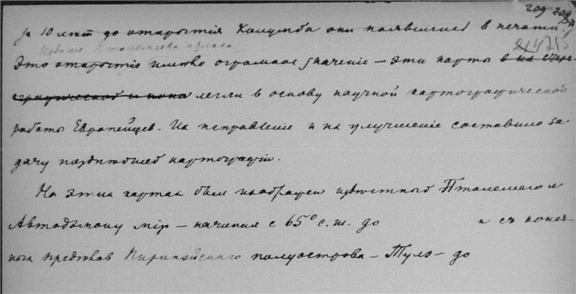 за 10 лѣт до открытія Колумба они появились в печати.
издание Птолемеева атласа
Это открытіе имѣло огромное значеніе – эти карты
легли в основу научной картографической
работы Европейцев. Их исправленіе и их улучшеніе составило за-
дачу позднѣйшей картографіи.
На этих картах был изображен извѣстный Птолемею и
міръ – начиная с 65° с. ш. до и съ конеч-
ных предѣлов Пиринейскаго полуострова – Туле – до